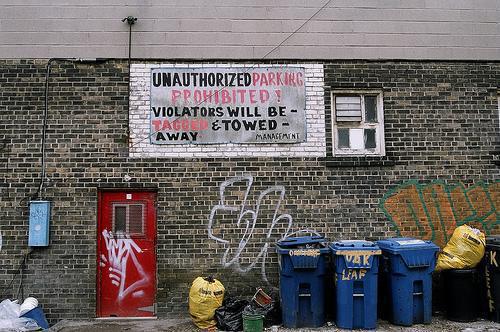 UNAUTHORIZED PARKING
PROHIBITED !
VIOLATORS WILL BE -
TAGGED & TOWED -
AWAY
MANAGEMENT
OAK
LAF